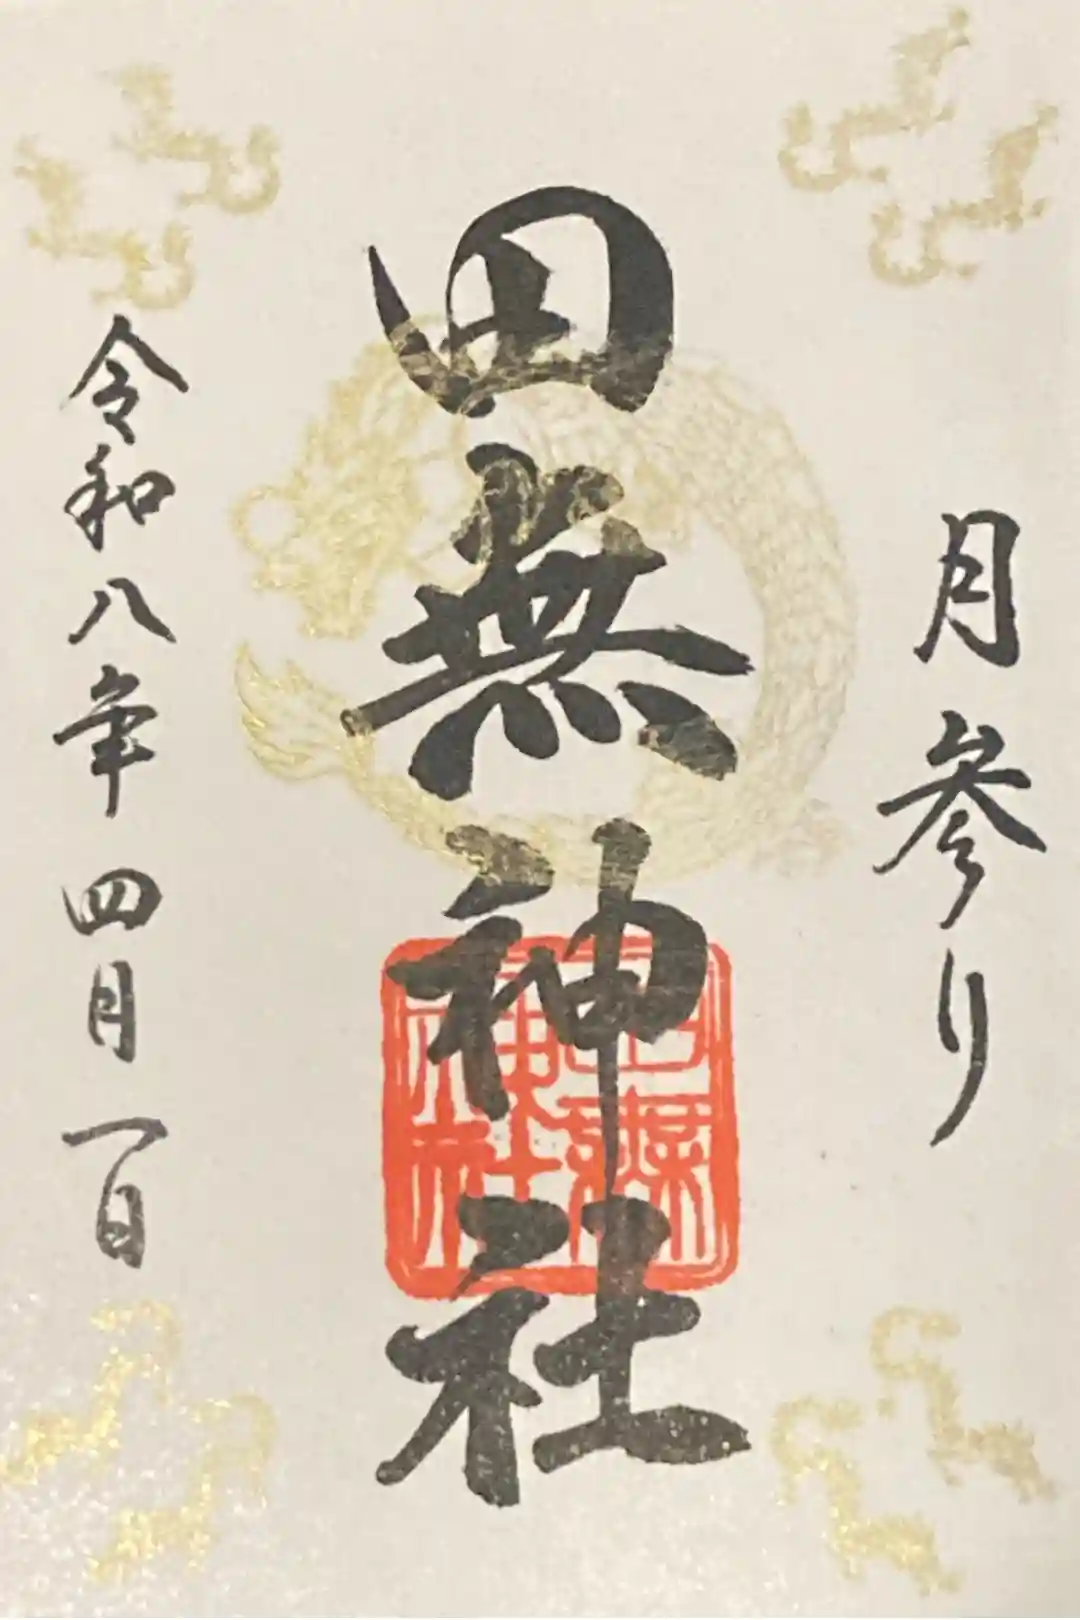 月参り
田無神社
田無神社
令和八年四月一日